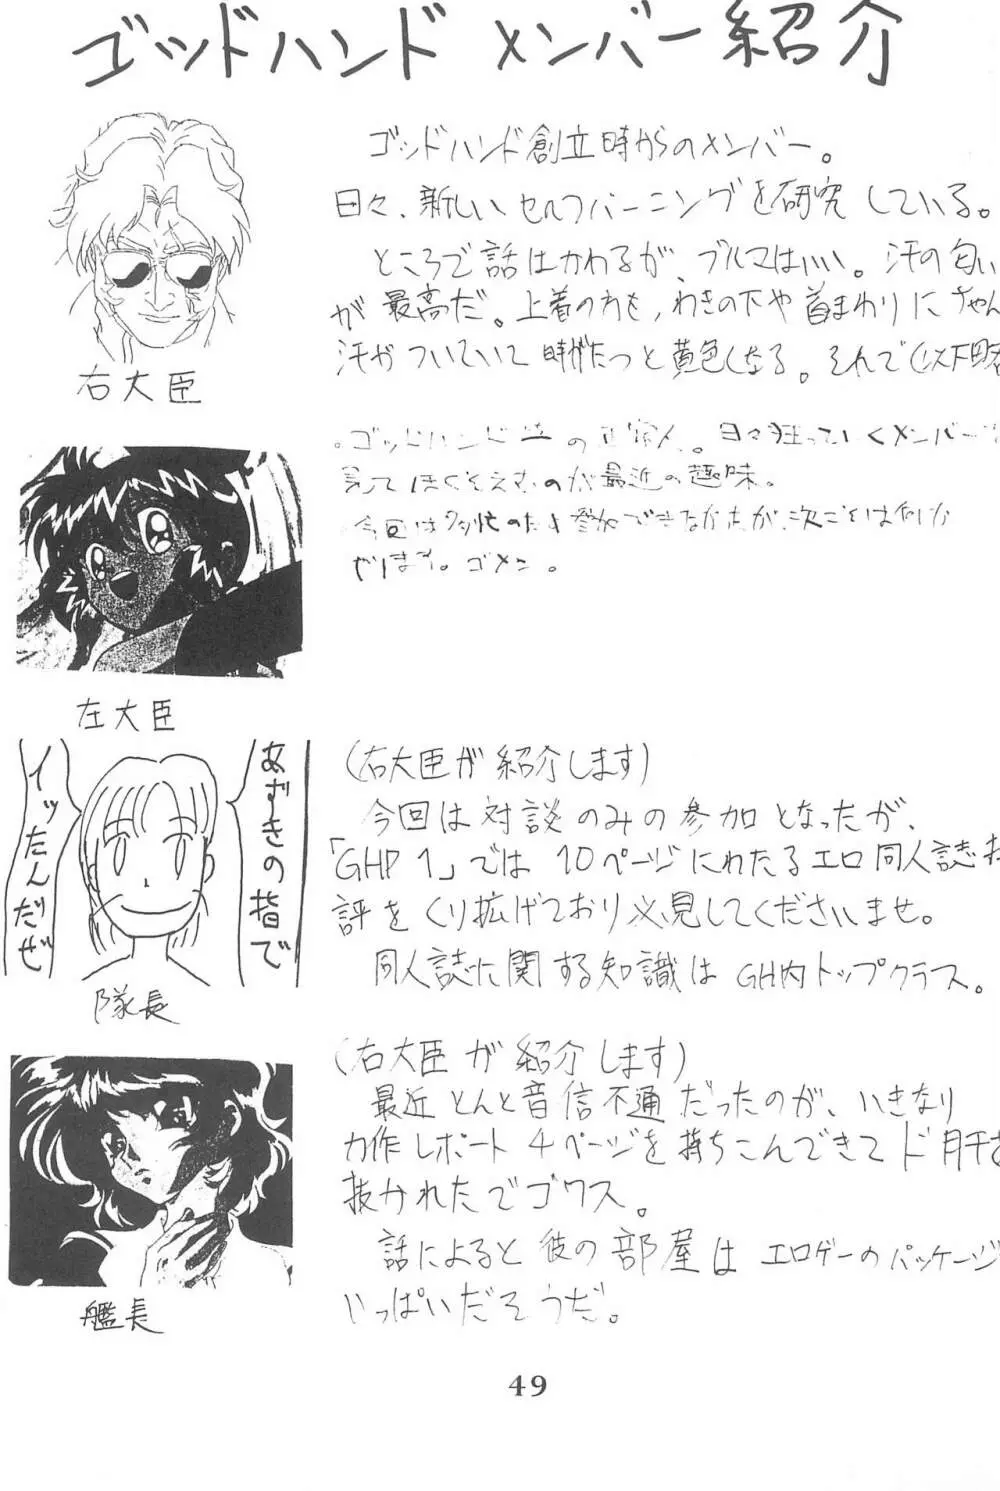 ゴッドハンド メンバー紹介
ゴッドハンド創立時からのメンバー。
日々、新しいセルフバーニングを研究している。
ところで話はかわるが、ブルマはいい。汗の匂い
が最高だ。上着の方も、わきの下や首まわりにちゃん
汗がついていて時がたつと黄色くなる。それで(以下略
右大臣
ゴッドハンド の正常人。日々狂っていくメンバー
見てほくそえむのが最近の趣味。
今回は多忙のため参加できなかったが、次こそは何か
やります。ゴメン。
左大臣
あずきの指で
イッたんだぜ
隊長
(右大臣が紹介します)
今回は対談のみの参加となったが、
「GHP1」では10ページにわたるエロ同人誌
評をくり拡げており必見してくださいませ。
同人誌に関する知識はGH内トップクラス。
(右大臣が紹介します)
最近とんと音信不通だったのが、いきなり
力作レポート4ページを持ちこんできてド肝を
抜かれたでゴワス。
話によると彼の部屋はエロゲーのパッケージ
いっぱいだそうだ。
艦長
49